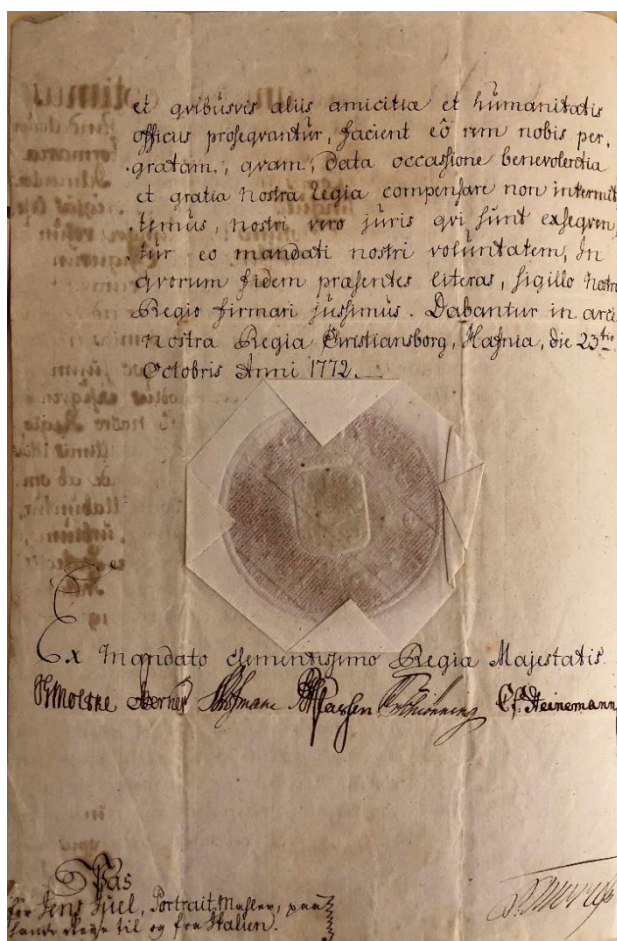 et qvibusvis aliis amicitiæ et humanitatis
officiis prosegvantur, facient eô rem nobis per,
gratam, qvam, Data occassione benevolentia
et gratia Nostra Regia compensare non intermit
temus, nostri vero juris qvi sunt exseqven,
tur eo mandati nostri voluntatem, In
qvorum fidem præsentes literas, sigillo Nostro
Regio firmari jussimus. Dabantur in arce
nostra Regia Christiansborg, Hafniæ, die 23tio
Octobris Anni 1772.
Ex Mandato clementissimo Regiæ Majestatis.
Moltke Hofmann Schiönning C.F. Heinemann
Pas
for Jens Juel, Portrait Mahler, paa
hands Reyse til og fra Italien.